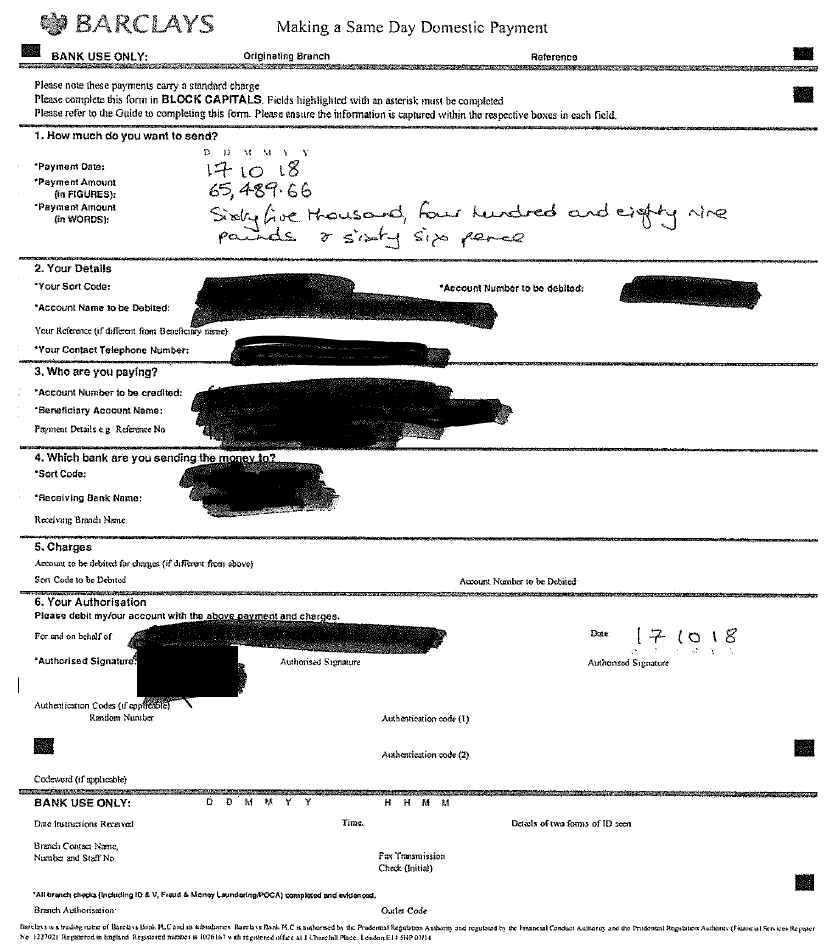 BARCLAYS Making a Same Day Domestic Payment
BANK USE ONLY: Originating Branch Reference
Please note these payments carry a standard charge
Please complete this form in BLOCK CAPITALS. Fields highlighted with an asterisk must be completed
Please refer to the Guide to completing this form. Please ensure the information is captured within the respective boxes in each field.
1. How much do you want to send?
D D M M Y Y
*Payment Date: 17 10 18
*Payment Amount
(in FIGURES): 65,489.66
*Payment Amount
(in WORDS): Sixty five thousand, four hundred and eighty nine
pounds & sixty six pence
2. Your Details
*Your Sort Code: *Account Number to be debited:
*Account Name to be Debited:
Your Reference (if different from Beneficiary name)
*Your Contact Telephone Number:
3. Who are you paying?
*Account Number to be credited:
*Beneficiary Account Name:
Payment Details e.g. Reference No
4. Which bank are you sending the money to?
*Sort Code:
*Receiving Bank Name:
Receiving Branch Name
5. Charges
Account to be debited for charges (if different from above)
Sort Code to be Debited Account Number to be Debited
6. Your Authorisation
Please debit my/our account with the above payment and charges.
For and on behalf of Date 17 10 18
*Authorised Signature: Authorised Signature Authorised Signature
Authentication Codes (if applicable)
Random Number Authentication code (1)
Authentication code (2)
Codeword (if applicable)
BANK USE ONLY: D D M M Y Y H H M M
Date Instructions Received Time. Details of two forms of ID seen
Branch Contact Name,
Number and Staff No. Fax Transmission
Check (Initial)
*All branch checks (including ID & V, Fraud & Money Laundering/POCA) completed and evidenced.
Branch Authorisation Outlet Code
Barclays is a trading name of Barclays Bank PLC and its subsidiaries. Barclays Bank PLC is authorised by the Prudential Regulation Authority and regulated by the Financial Conduct Authority and the Prudential Regulation Authority (Financial Services Register
No. 122702). Registered in England. Registered number is 1026167 with registered office at 1 Churchill Place, London E14 5HP